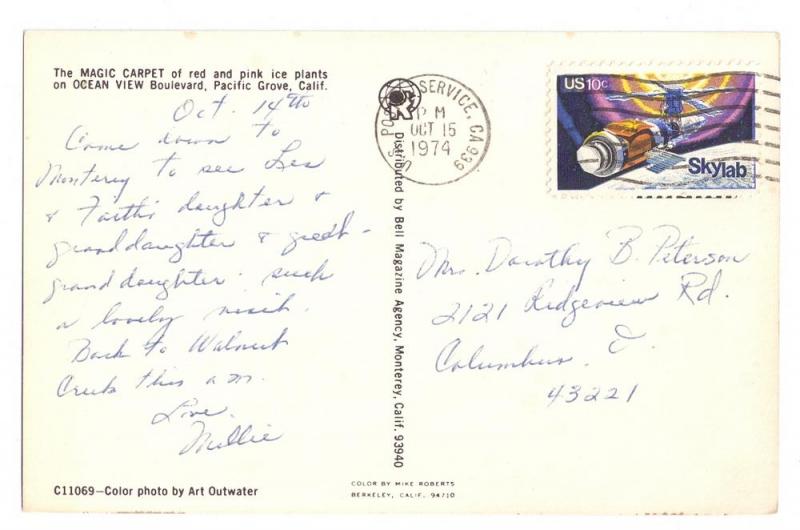 The MAGIC CARPET of red and pink ice plants
on OCEAN VIEW Boulevard, Pacific Grove, Calif.
Oct. 14th
Came down to
Monterey to see Lea
& Faith's daughter &
granddaughter & great-
granddaughter. such
a lovely visit.
Back to Walnut
Creek this a.m.
Love.
Millie
C11069—Color photo by Art Outwater
Distributed by Bell Magazine Agency, Monterey, Calif. 93940
COLOR BY MIKE ROBERTS
BERKELEY, CALIF. 94710
SERVICE, CA 939
PM
OCT 15
1974
US 10c
Skylab
Mrs. Dorothy B. Peterson
2121 Ridgeview Rd.
Columbus. O.
43221